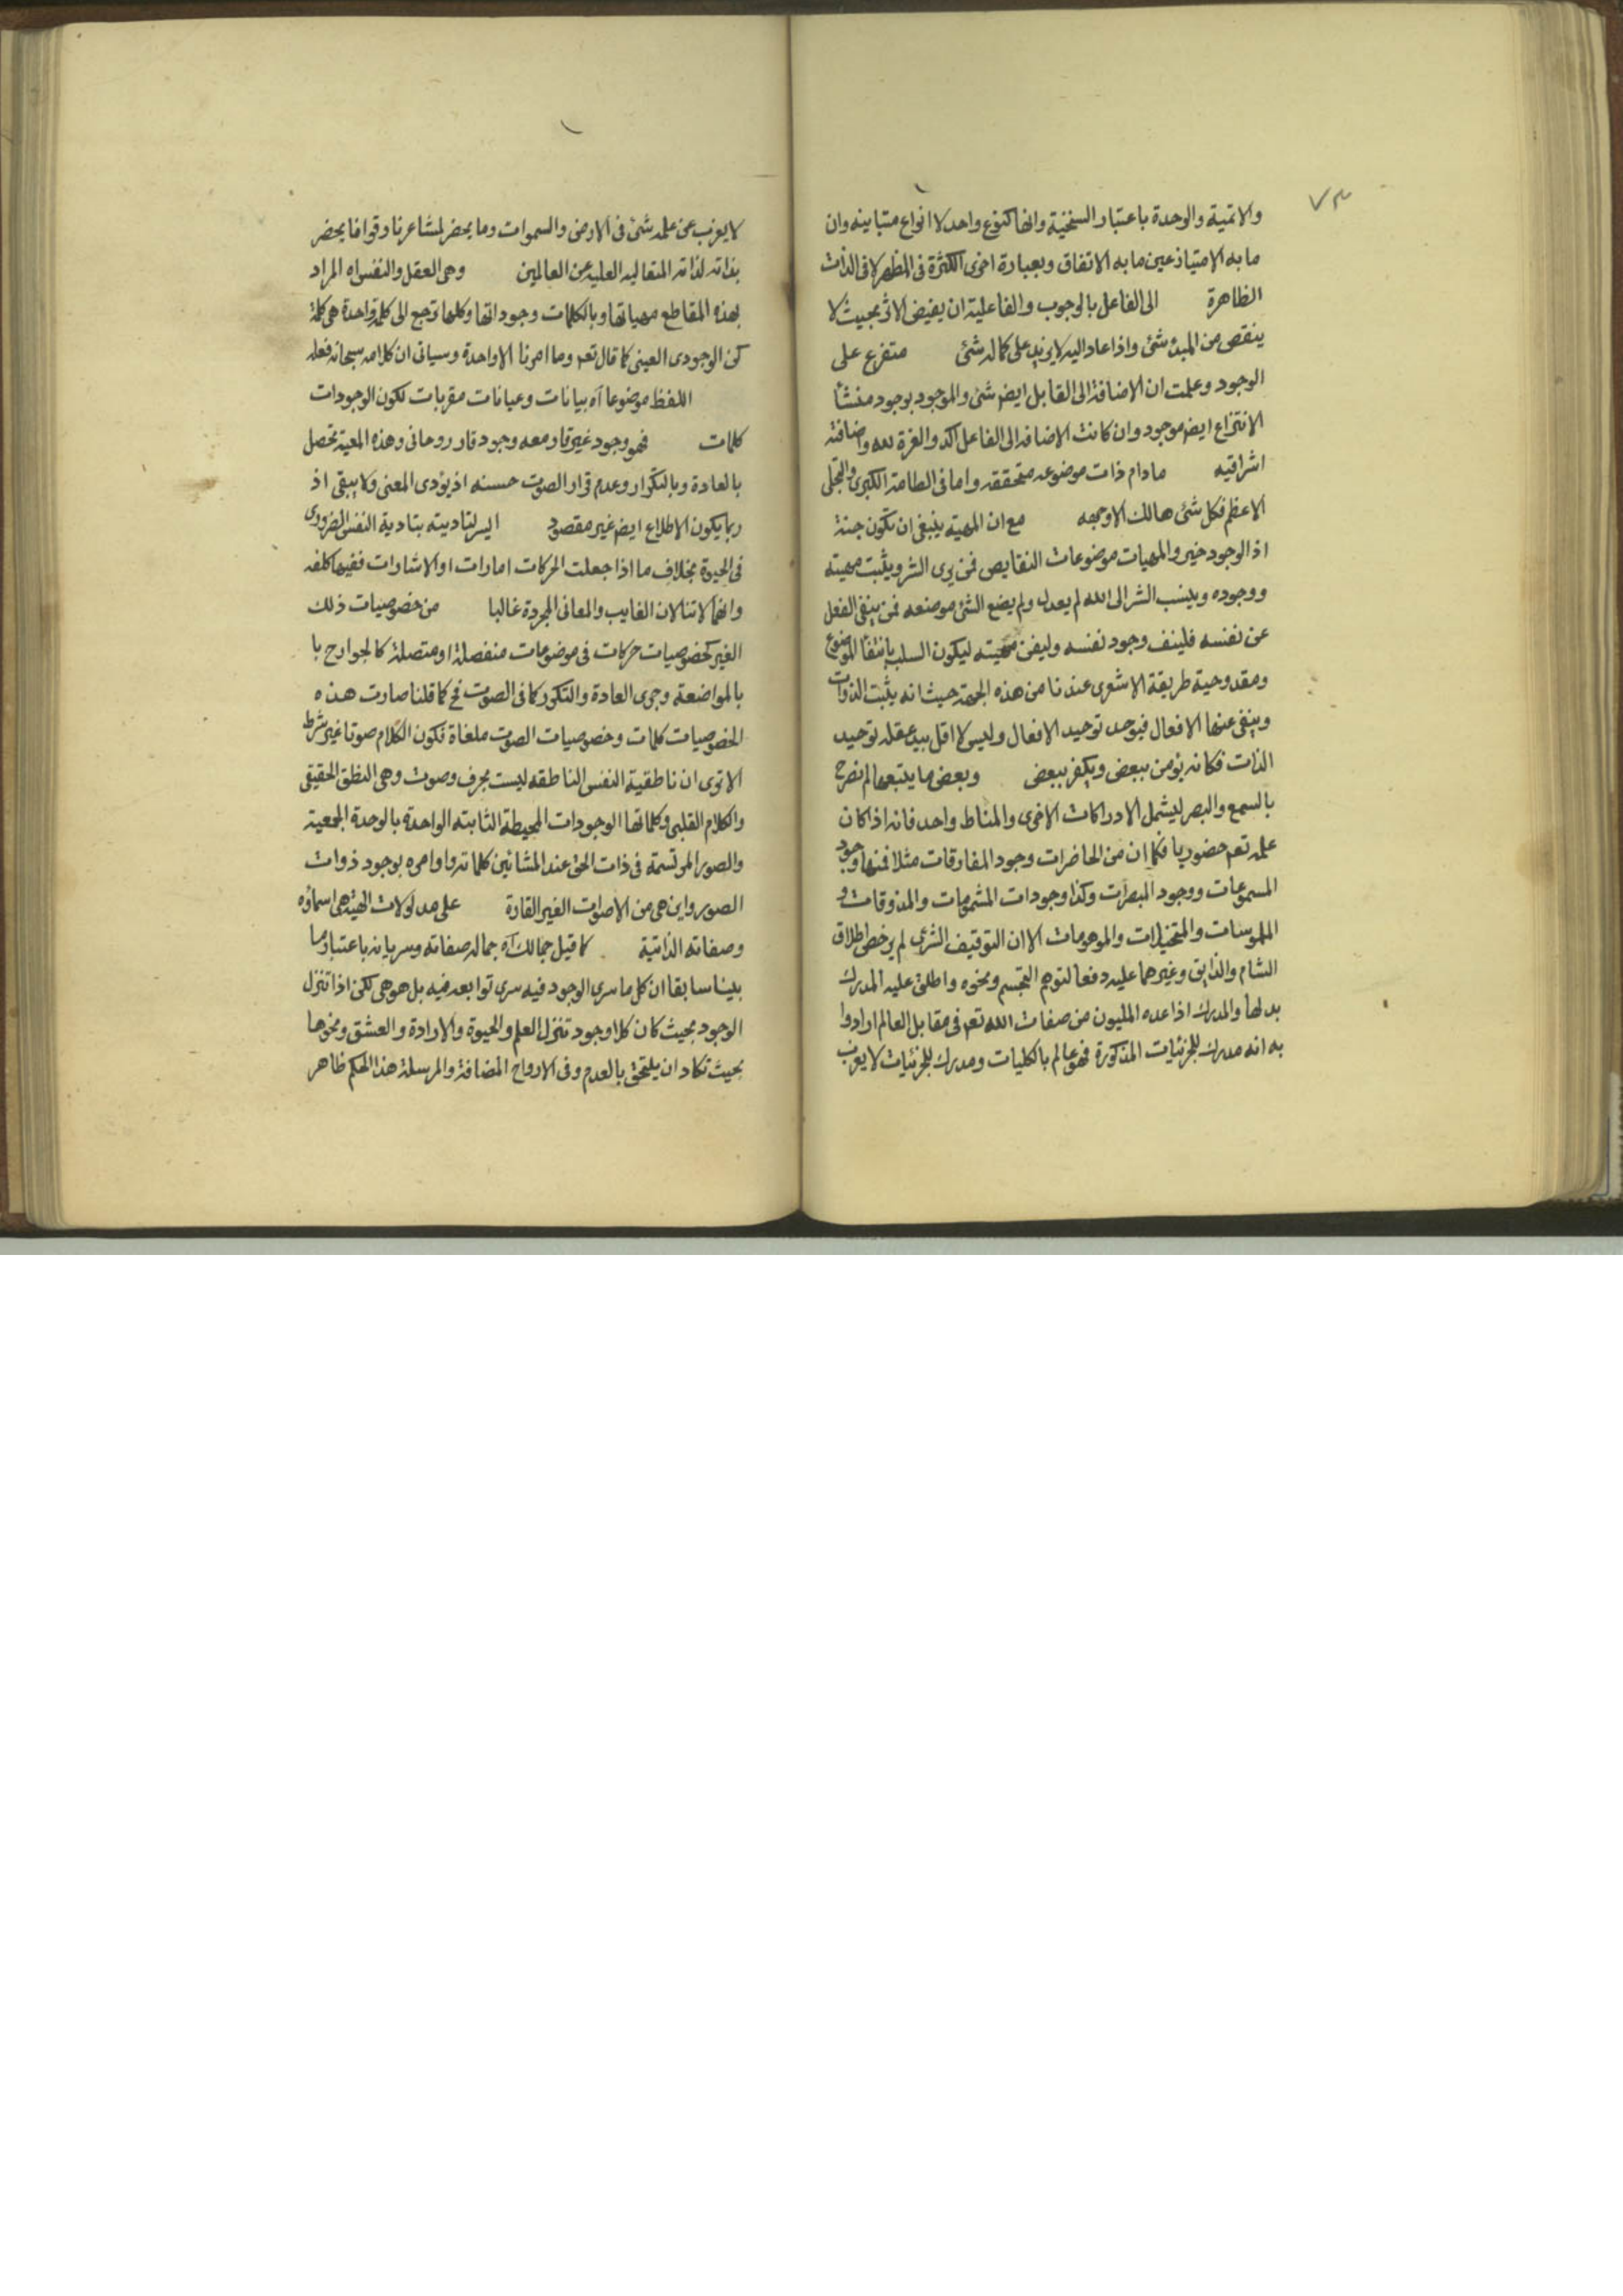 ٧٣
والاتمية والوحدة باعتبار السنخية وانها كنوع واحد لا انواع متباينه وان
ما به الامتياز عين ما به الاتفاق وبعبارة اخرى الكثرة فى المظهر لا فى الذات
الظاهرة الى الفاعل بالوجوب والفاعلية ان يفيض الاثر بحيث لا
ينقص من المبدء شئ واذا عاد اليه لا يزيد على كماله شئ متفرع على
الوجود وعلمت ان الاضافة الى القابل ايض شئ والموجود بوجود منشأ
الانتزاع ايض موجود وان كانت الاضافه الى الفاعل اكد والعزة لله واضافته
اشراقيه مادام ذات موضوعه متحققه واما فى الطامة الكبرى والتجلى
الاعظم فكل شئ هالك الا وجهه مع ان المهية ينبغى ان تكون جنة
اذ الوجود خير والمهيات موضوعات النقايص فمن يرى الشر ويثبت مهيته
ووجوده وينسب الشر الى الله لم يعدل ولم يضع الشئ موضعه فمن ينفى الفعل
عن نفسه فلينف وجود نفسه وليفن مهيته ليكون السلب بانتفأ الموضوع
ومقدوحية طريقة الاشعرى عندنا من هذه الجهة حيث انه يثبت الذوات
وينفى عنها الافعال فيوحد توحيد الافعال وليس لا اقل بيد عقله توحيد
الذات فكانه يؤمن ببعض ويكفر ببعض وبعض ما يتبعها لم نصرح
بالسمع والبصر ليشمل الادراكات الاخرى والمناط واحد فانه اذا كان
علمه تعم حضوريا فكما ان من الحاضرات وجود المفارقات مثلا فمنها وجود
المسموعات ووجود المبصرات وكذا وجودات المشمومات والمذوقات و
الملموسات والمتخيلات والموهومات الا ان التوقيف الشرعى لم يرخص اطلاق
الشام والذايق وغيرهما عليه دفعا لتوهم التجسم ونحوه واطلق عليه المدرك
بدلها والمدرك اذا عده المليون من صفات الله تعم فى مقابل العالم ارادوا
به انه مدرك للجزئيات المذكورة فهو عالم بالكليات ومدرك للجزئيات لا يعزب
لا يعزب عن علمه شئ فى الارض والسموات وما يحضر لمشاعرنا وقوانا يحضر
بذاته لذاته المتعاليه العلية عن العالمين وهى العقل والنفس اه المراد
بهذه المقاطع مهياتها وبالكلمات وجوداتها وكلها ترجع الى كلمة واحدة هى كلمة
كن الوجودى العينى كما قال تعم وما امرنا الا واحدة وسيأتى ان كلامه سبحانه فعله
اللفظ موضوعا آه بيانات وعيانات مقربات لكون الوجودات
كلمات فهو وجود غير قار معه وجود قار روحانى وهذه المعية تحصل
بالعادة وبالتكرار وعدم قرار الصوت حسنه اذ يؤدى المعنى ولا يبقى اذ
ربما يكون الاطلاع ايض غير مقصود ايسر لتاديته بتادية النفس الضرورى
فى الحيوة بخلاف ما اذا جعلت الحركات امارات او الاشارات ففيها كلفه
وانهما لا تنالان الغايب والمعانى المجردة غالبا من خصوصيات ذلك
الغير كخصوصيات حركات فى موضوعات منفصلة او متصلة كالجوارح با
بالمواضعة وجرى العادة والتكرر كما فى الصوت فح كما قلنا صارت هذه
الخصوصيات كلمات وخصوصيات الصوت ملغاة فكون الكلام صوتا غير شرط
الا ترى ان ناطقية النفس الناطقه ليست بحرف وصوت وهى النطق الحقيقى
والكلام القلبى وكلماتها الوجودات المحيطة الثابته الواحدة بالوحدة الجمعية
والصور المرتسمة فى ذات الحق عند المشائين كلماته واوامره بوجود ذوات
الصور واين هى من الاصوات الغير القارة على مدلولات الهية هى اسماؤه
وصفاته الذاتية كما قيل جمالك آه جماله صفاته وسريانه باعتبار ما
بينا سابقا ان كل ما سرى الوجود فيه سرى توابعه فيه بل هو هى لكن اذا تنزل
الوجود بحيث كان كلا وجود تنزل العلم والحيوة والارادة والعشق ونحوها
بحيث تكاد ان يلتحق بالعدم وفى الارواح المضافة والمرسلة هذا الحكم ظاهر